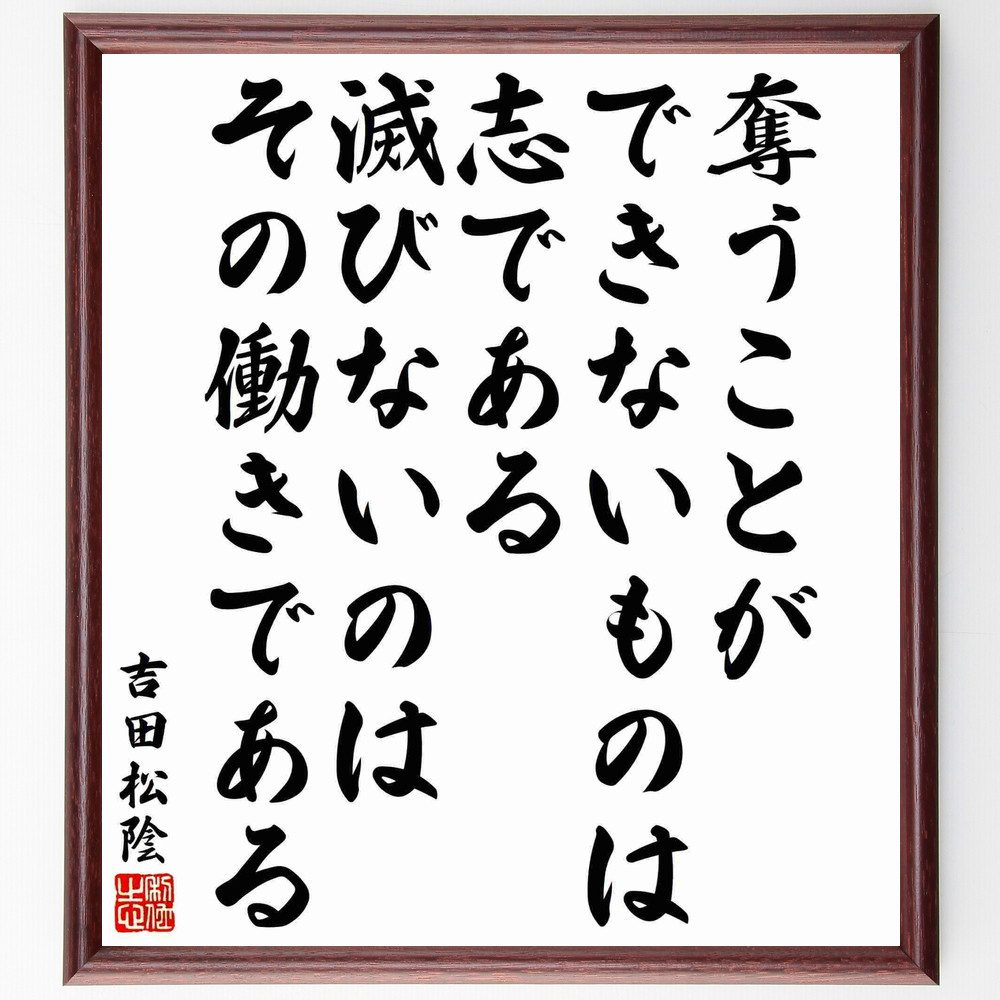 奪うことが
できないものは
志である
滅びないのは
その働きである
吉田松陰